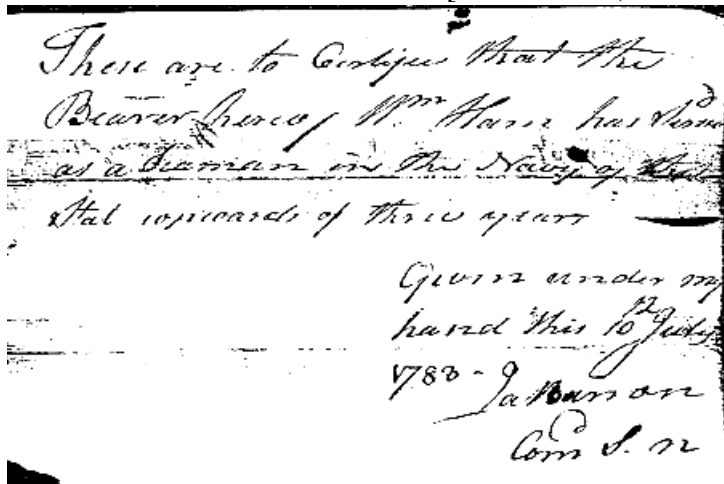 These are to Certifie that the
Bearer hereof Wm Ham has Servd
as a Seaman in the Navy of this
Stat upwards of three years
Given under my
hand this 10th July
1783 - Ja Barron
Comd S. n